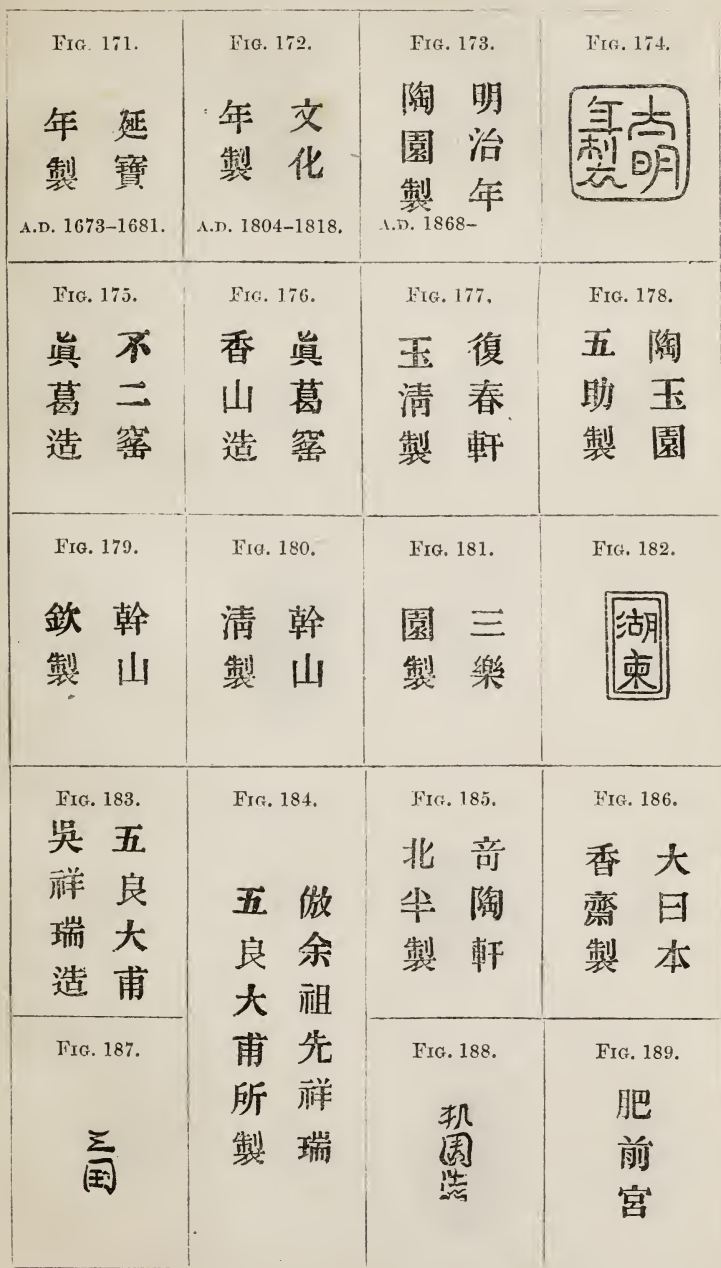 FIG. 171.
延寶
年製
A.D. 1673–1681.
FIG. 172.
文化
年製
A.D. 1804–1818.
FIG. 173.
明治年
陶園製
A.D. 1868–
FIG. 174.
大明
年製
FIG. 175.
不二窰
眞葛造
FIG. 176.
眞葛窰
香山造
FIG. 177.
復春軒
玉淸製
FIG. 178.
陶玉園
五助製
FIG. 179.
幹山
欽製
FIG. 180.
幹山
淸製
FIG. 181.
三樂
園製
FIG. 182.
湖東
FIG. 183.
五良大甫
吳祥瑞造
FIG. 184.
倣余祖先祥瑞
五良大甫所製
FIG. 185.
竒陶軒
北半製
FIG. 186.
大日本
香齋製
FIG. 187.
FIG. 188.
FIG. 189.
肥前宮